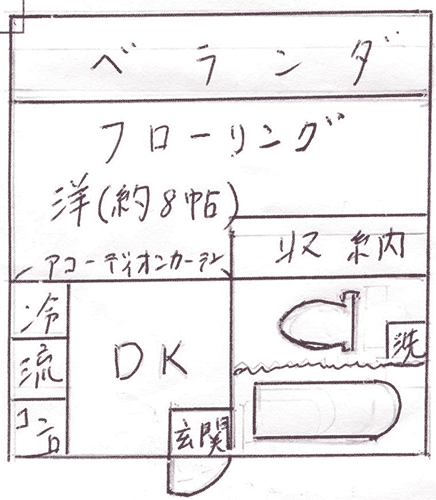 ベランダ
フローリング
洋(約8帖)
収納
アコーディオンカーテン
冷
洗
流
DK
コンロ
玄関